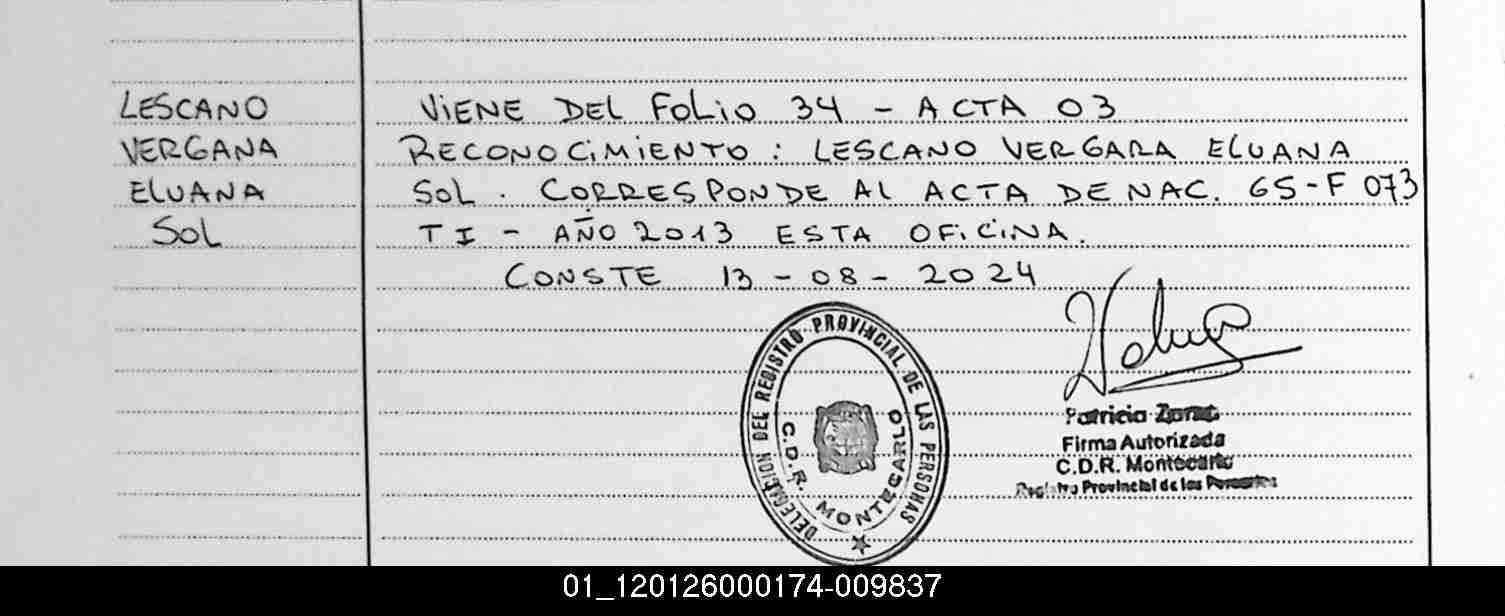 LESCANO
VERGANA
ELUANA
SOL
VIENE DEL FOLIO 34 - ACTA 03
RECONOCIMIENTO : LESCANO VERGARA ELUANA
SOL . CORRESPONDE AL ACTA DE NAC. 65-F 073
TI - AÑO 2013 ESTA OFICINA.
CONSTE 13 - 08 - 2024
DELEGACION DEL REGISTRO PROVINCIAL DE LAS PERSONAS
C.D.R. MONTECARLO
Patricia
Firma Autorizada
C.D.R. Montecarlo
Registro Provincial de las Personas
01_120126000174-009837